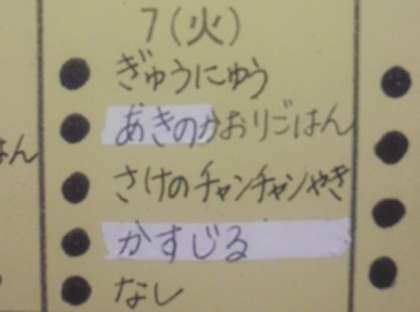 7(火)
ぎゅうにゅう
あきのかおりごはん
さけのチャンチャンやき
かすじる
なし
はん